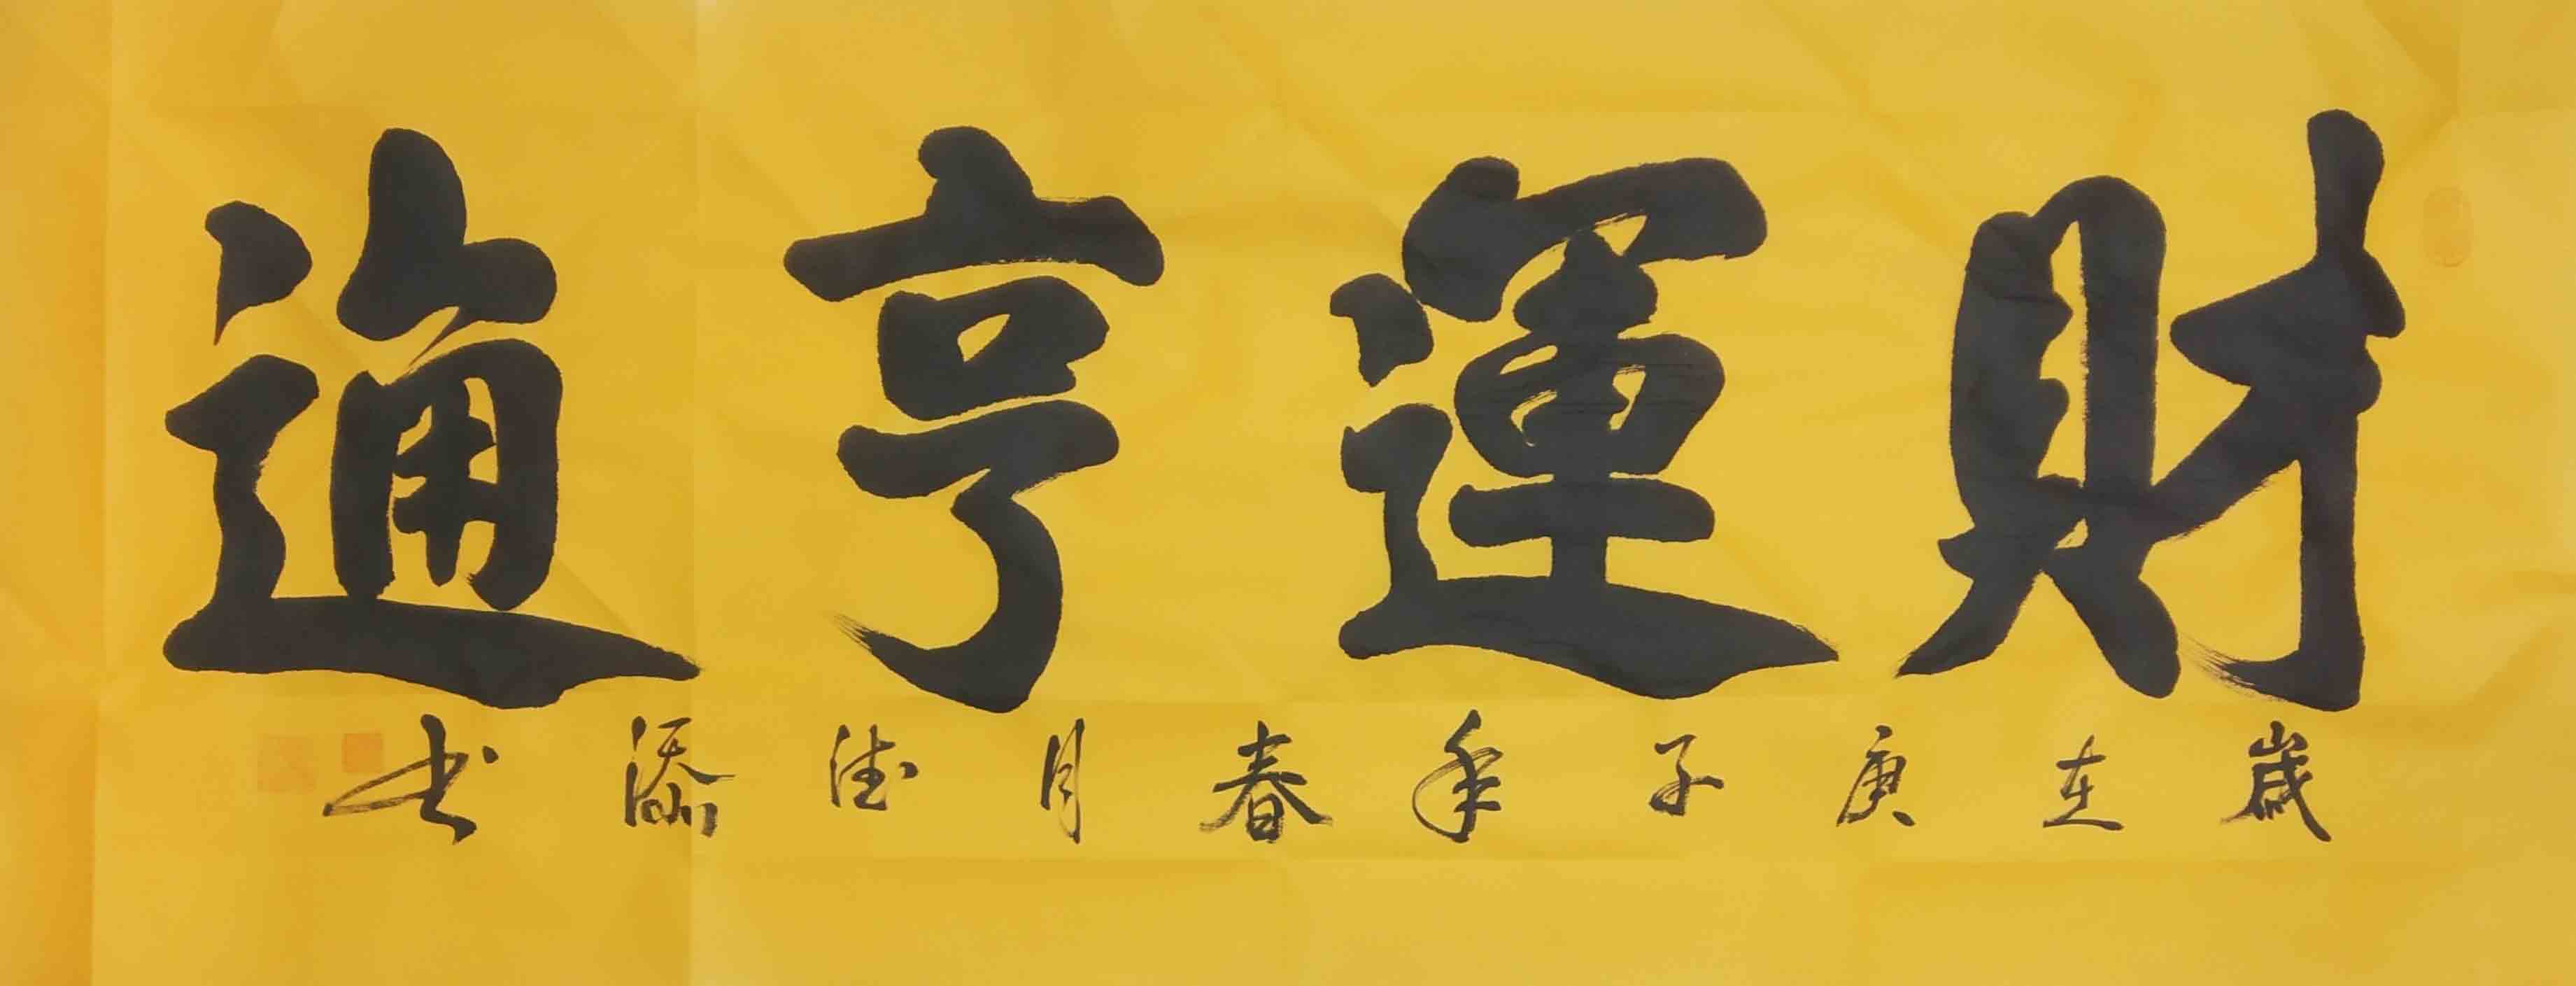 財運亨通
歲在庚子年春月德添书